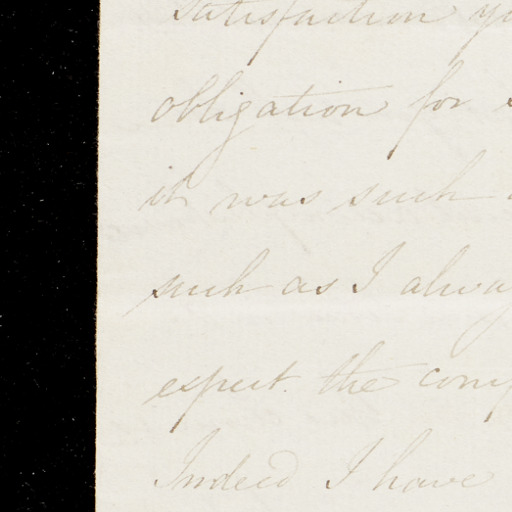 Satisfaction
obligation for
it was such
such as I alway
expect the
Indeed I have